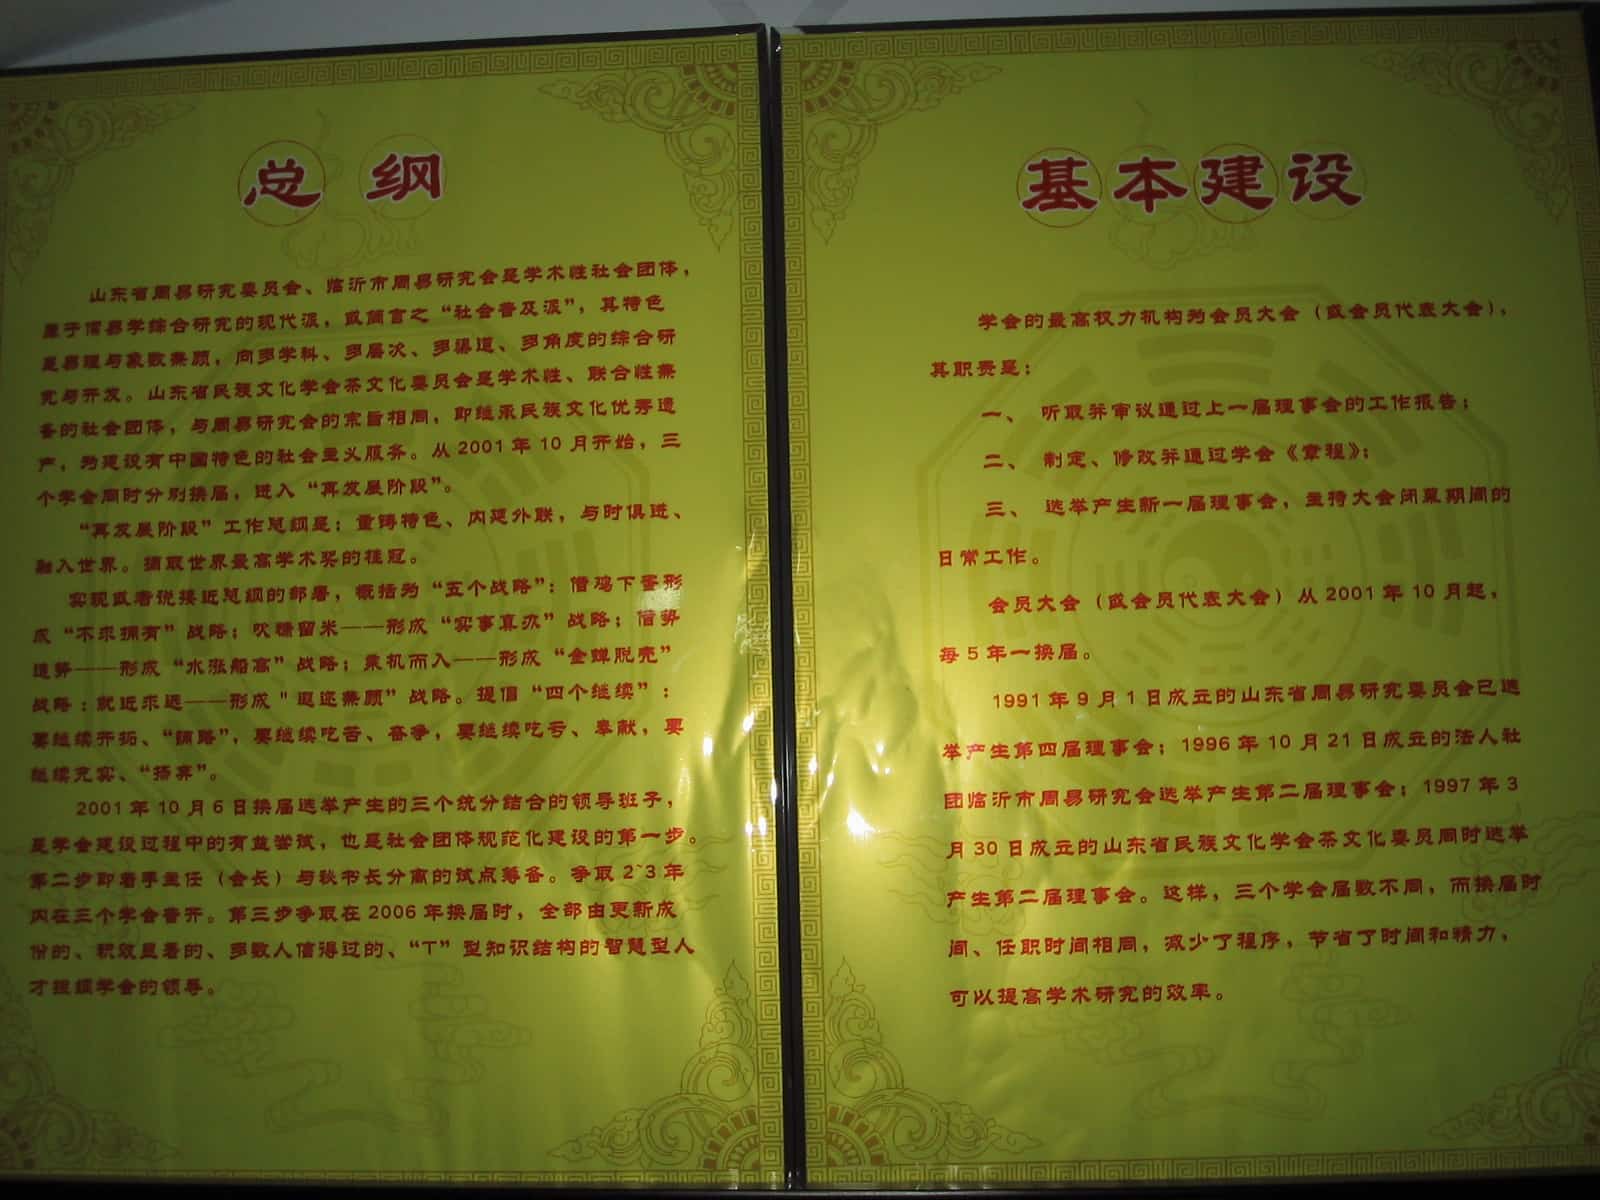 总纲
山东省周易研究委员会、临沂市周易研究会是学术性社会团体，
属于信易学综合研究的现代派，或简言之“社会普及派”，其特色
是易理与象数兼顾，向多学科、多层次、多渠道、多角度的综合研
究与开发。山东省民族文化学会茶文化委员会是学术性、联合性兼
备的社会团体，与周易研究会的宗旨相同，即继承民族文化优秀遗
产，为建设有中国特色的社会主义服务。从2001年10月开始，三
个学会同时分别换届，进入“再发展阶段”。
“再发展阶段”工作总纲是：重铸特色、内延外联，与时俱进、
融入世界。摘取世界最高学术奖的桂冠。
实现或者说接近总纲的部署，概括为“五个战略”：借鸡下蛋形
成“不求拥有”战略；吹糠留米——形成“实事真办”战略；借势
造势——形成“水涨船高”战略；乘机而入——形成“金蝉脱壳”
战略：就近求远——形成"遐迩兼顾”战略。提倡“四个继续”：
要继续开拓、“铺路”，要继续吃苦、奋争，要继续吃亏、奉献，要
继续充实、“扬弃”。
2001年10月6日换届选举产生的三个统分结合的领导班子，
是学会建设过程中的有益尝试，也是社会团体规范化建设的第一步。
第二步即着手主任（会长）与秘书长分离的试点筹备。争取2~3年
内在三个学会普开。第三步争取在2006年换届时，全部由更新成
份的、积效显著的、多数人信得过的、“T”型知识结构的智慧型人
才担纲学会的领导。
基本建设
学会的最高权力机构为会员大会（或会员代表大会），
其职责是：
一、 听取并审议通过上一届理事会的工作报告；
二、 制定、修改并通过学会《章程》；
三、 选举产生新一届理事会，主持大会闭幕期间的
日常工作。
会员大会（或会员代表大会）从2001年10月起，
每5年一换届。
1991年9月1日成立的山东省周易研究委员会已选
举产生第四届理事会；1996年10月21日成立的法人社
团临沂市周易研究会选举产生第二届理事会；1997年3
月30日成立的山东省民族文化学会茶文化委员同时选举
产生第二届理事会。这样，三个学会届数不同，而换届时
间、任职时间相同，减少了程序，节省了时间和精力，
可以提高学术研究的效率。